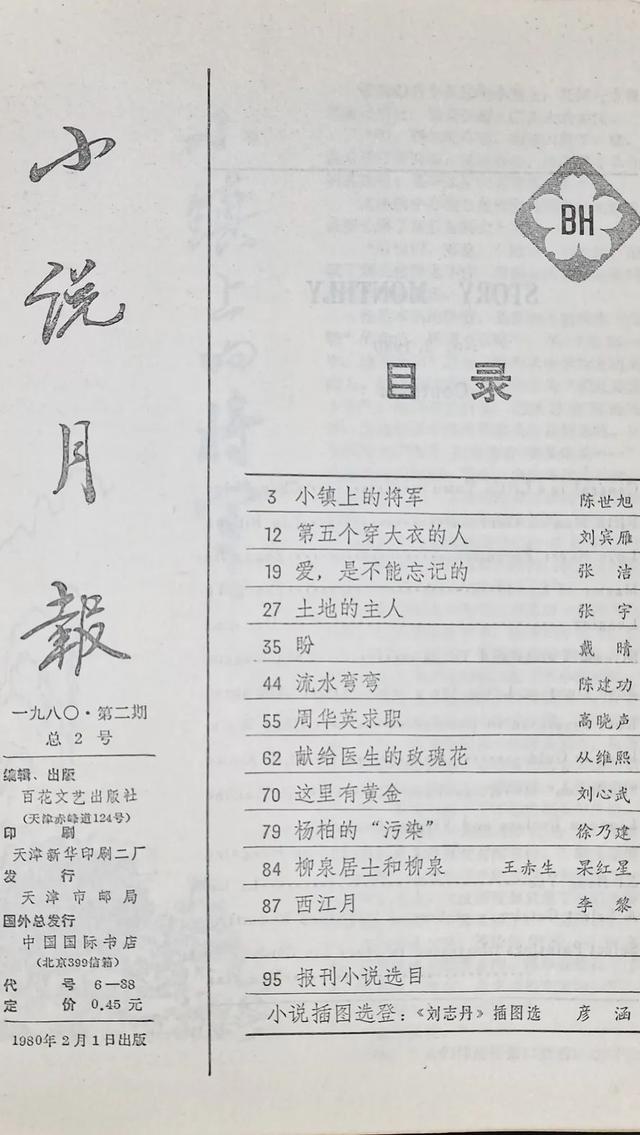 小说月報
一九八〇·第二期
总 2 号
编辑、出版
百花文艺出版社
(天津赤峰道124号)
印 刷
天津新华印刷二厂
发 行
天津市邮局
国外总发行
中国国际书店
(北京399信箱)
代 号 6—38
定 价 0.45 元
1980年2月1日出版
BH
目 录
3 小镇上的将军 陈世旭
12 第五个穿大衣的人 刘宾雁
19 爱，是不能忘记的 张 洁
27 土地的主人 张 宇
35 盼 戴 晴
44 流水弯弯 陈建功
55 周华英求职 高晓声
62 献给医生的玫瑰花 从维熙
70 这里有黄金 刘心武
79 杨柏的“污染” 徐乃建
84 柳泉居士和柳泉 王赤生 杲红星
87 西江月 李 黎
95 报刊小说选目
小说插图选登：《刘志丹》插图选 彦 涵
STORY MONTHLY